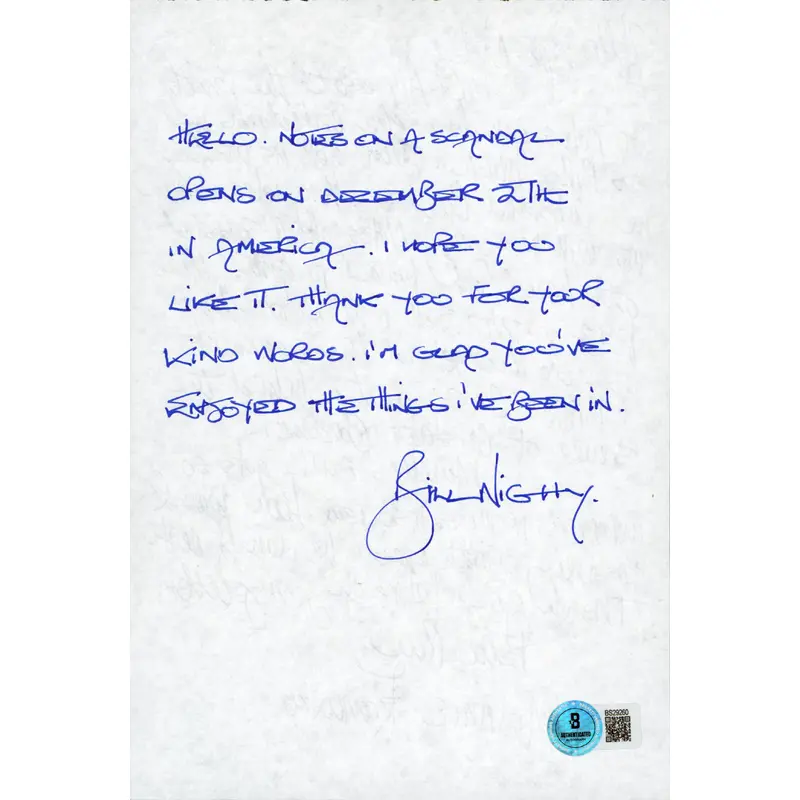 HELLO. NOTES ON A SCANDAL
OPENS ON DECEMBER 27TH
IN AMERICA. I HOPE YOU
LIKE IT. THANK YOU FOR YOUR
KIND WORDS. I'M GLAD YOU'VE
ENJOYED THE THINGS I'VE BEEN IN.
BILL NIGHY.
BS29260
B
AUTHENTICATED